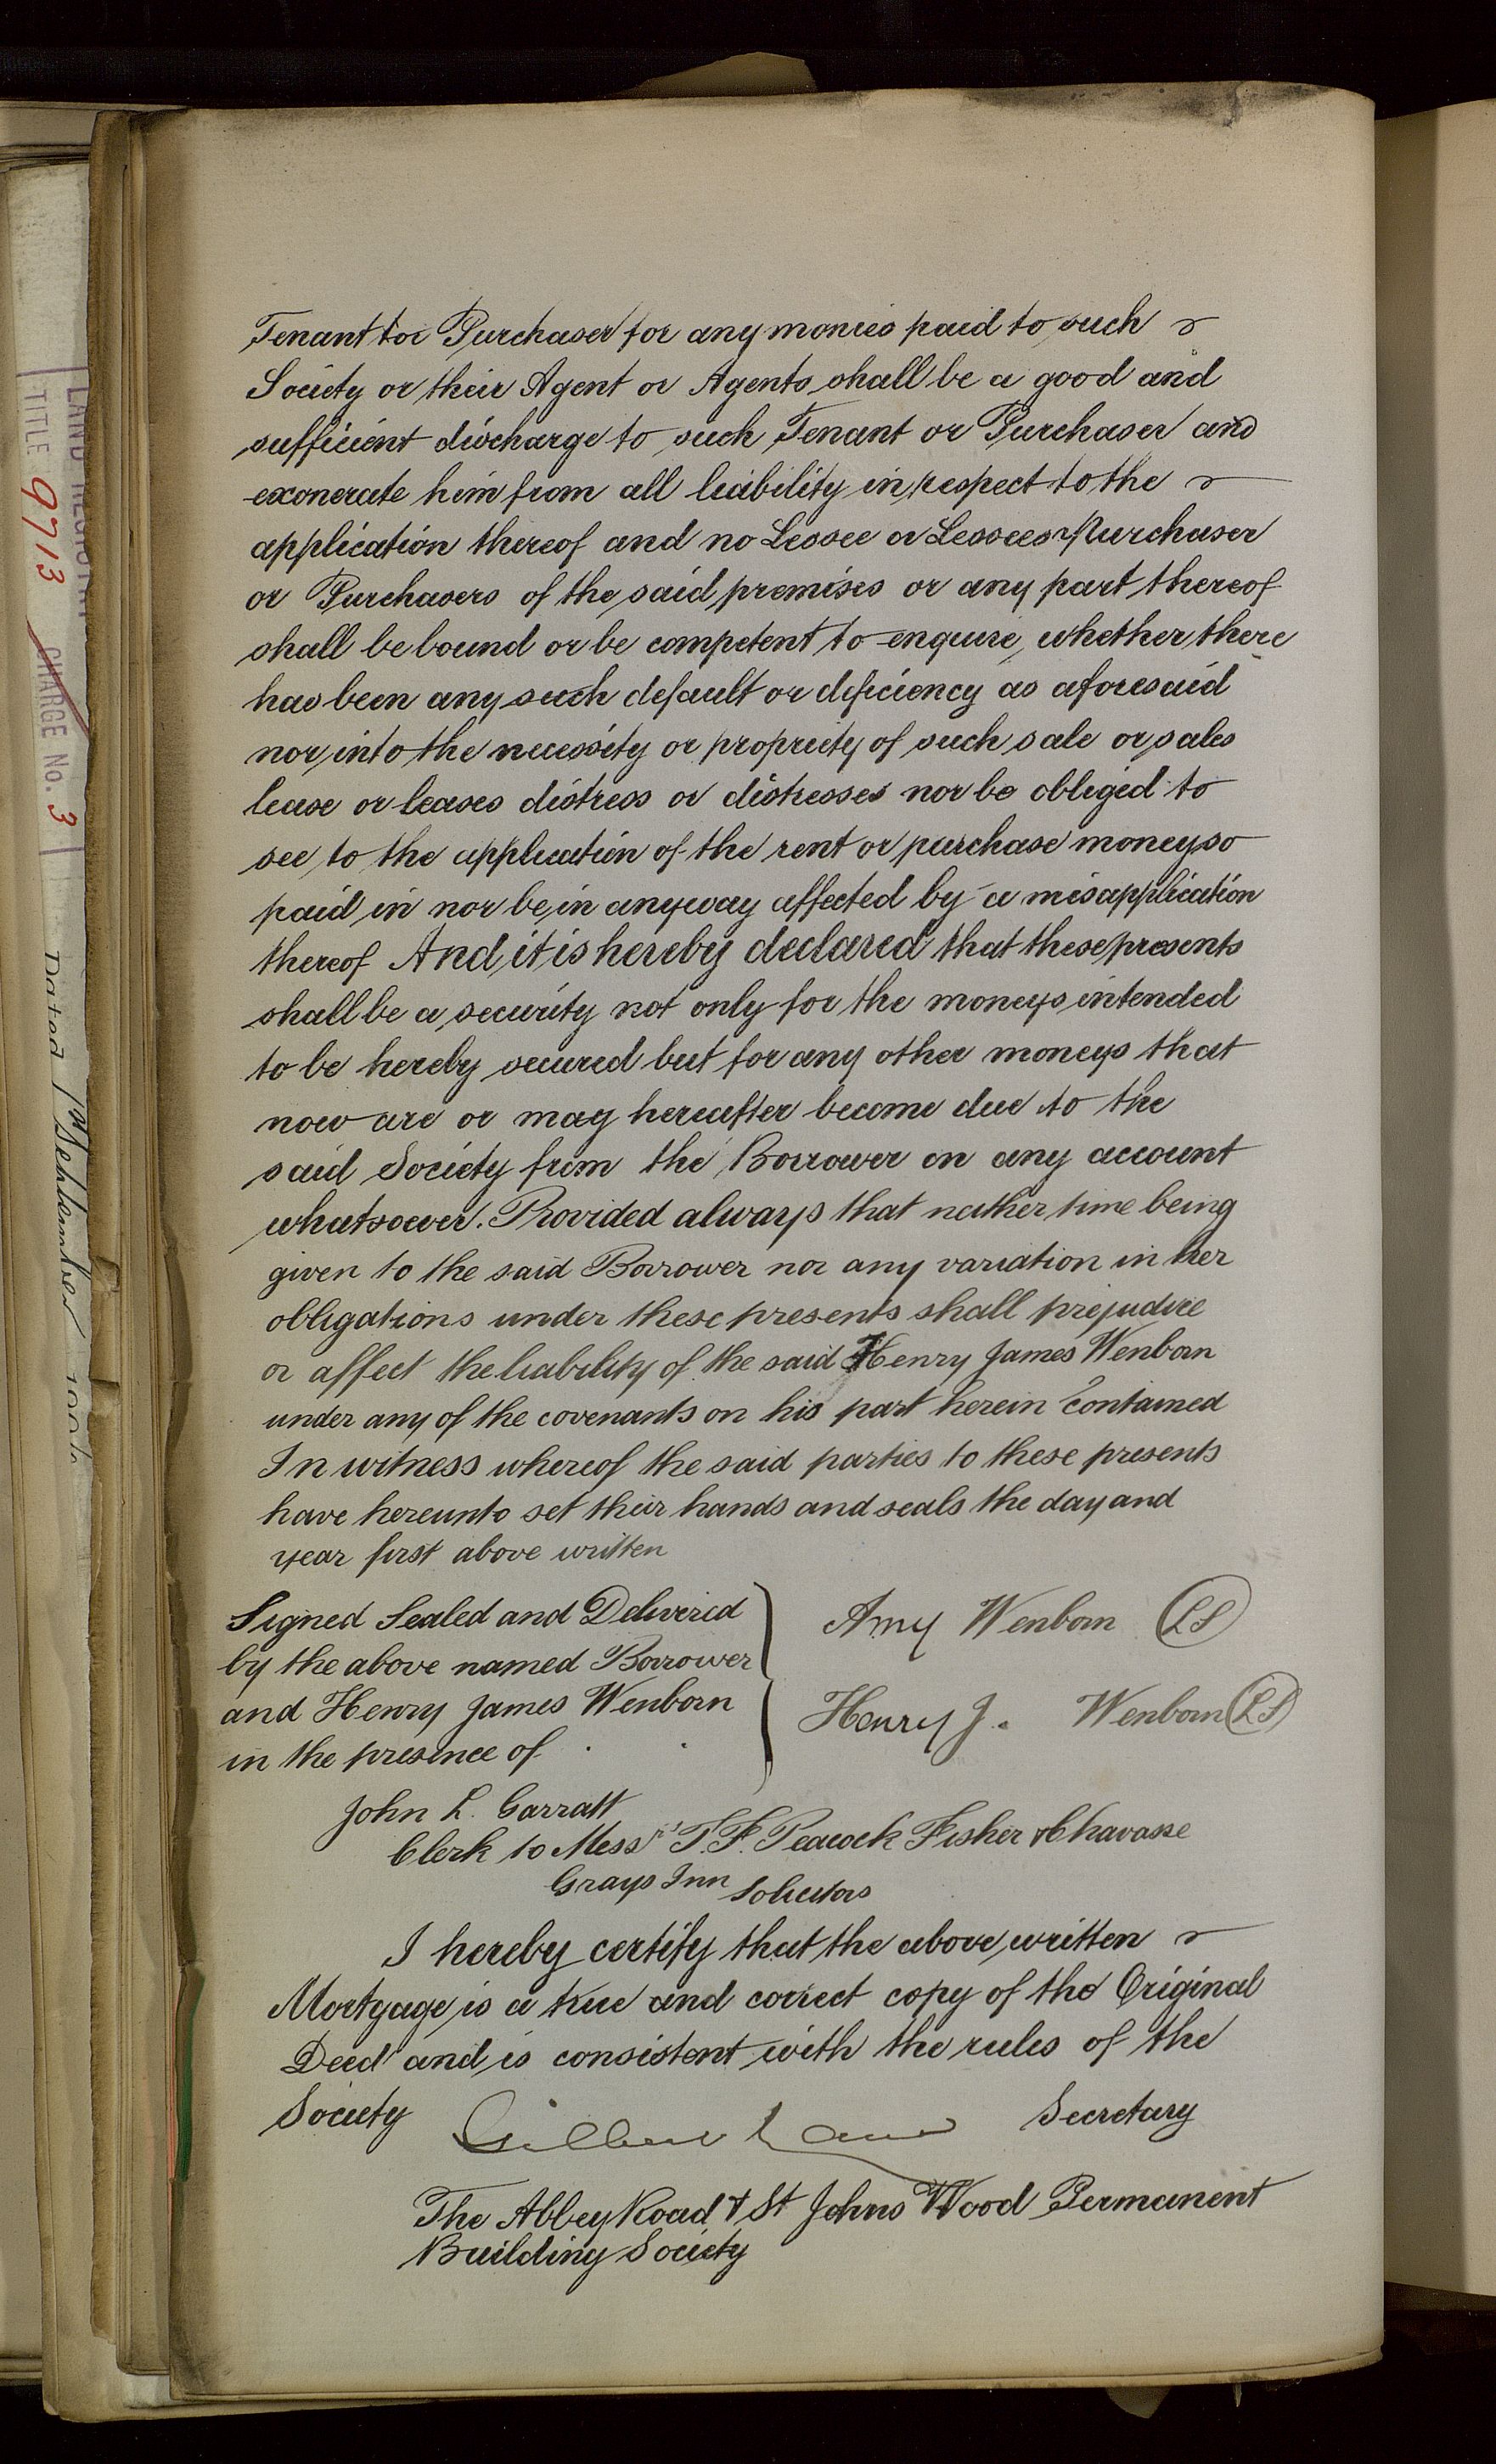 Tenant or Purchaser for any monies paid to such
Society or their Agent or Agents shall be a good and
sufficient discharge to such Tenant or Purchaser and
exonerate him from all liability in respect to the
application thereof and no Lessee or Lessees Purchaser
or Purchasers of the said premises or any part thereof
shall be bound or be competent to enquire whether there
has been any such default or deficiency as aforesaid
nor into the necessity or propriety of such sale or sales
lease or leases distress or distresses nor be obliged to
see to the application of the rent or purchase money so
paid in nor be in anyway affected by a misapplication
thereof And it is hereby declared that these presents
shall be a security not only for the moneys intended
to be hereby secured but for any other moneys that
now are or may hereafter become due to the
said Society from the Borrower on any account
whatsoever. Provided always that neither time being
given to the said Borrower nor any variation in her
obligations under these presents shall prejudice
or affect the liability of the said Henry James Wenborn
under any of the covenants on his part herein contained
In witness whereof the said parties to these presents
have hereunto set their hands and seals the day and
year first above written
Signed Sealed and Delivered
by the above named Borrower
and Henry James Wenborn
in the presence of
Amy Wenborn LS
Henry J. Wenborn LS
John L. Garratt
Clerk to Messrs T. F. Peacock Fisher & Chavasse
Grays Inn Solicitors
I hereby certify that the above written
Mortgage is a true and correct copy of the Original
Deed and is consistent with the rules of the
Society Gilbert Secretary
The Abbey Road & St Johns Wood Permanent
Building Society
LAND REGISTRY
TITLE 9713 CHARGE No. 3
Dated 1st September